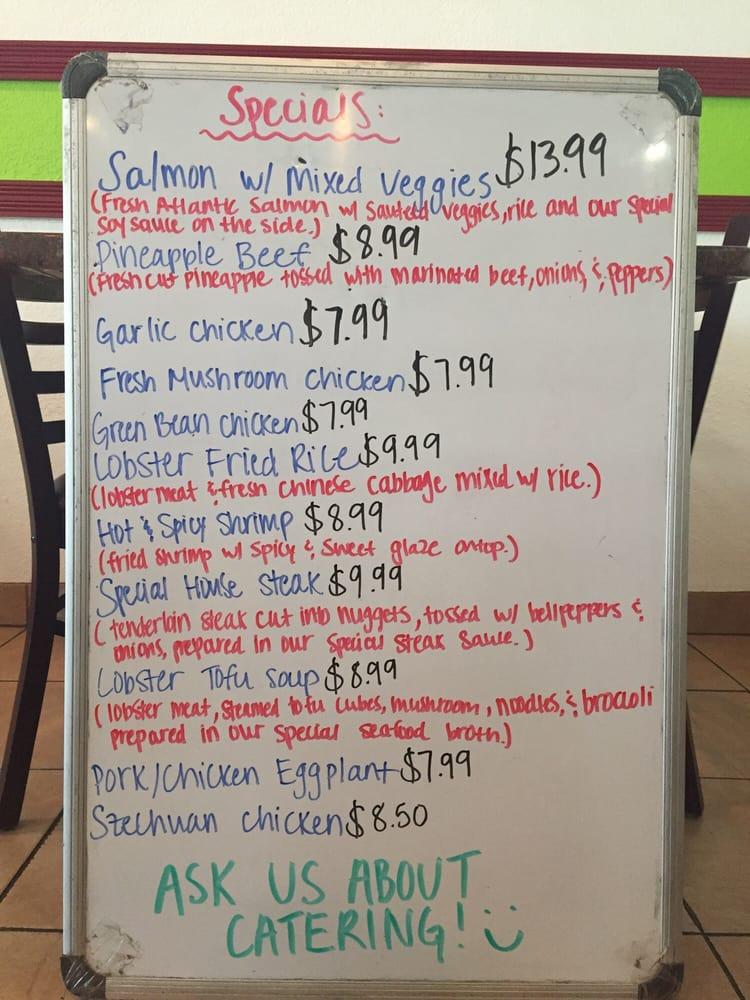 Specials:
Salmon w/ Mixed Veggies $13.99
(Fresh Atlantic Salmon w/ Sauteed Veggies, rice and our special
soy sauce on the side.)
Pineapple Beef $8.99
(Fresh cut pineapple tossed with marinated beef, onions, & peppers)
Garlic chicken $7.99
Fresh Mushroom chicken $7.99
Green Bean chicken $7.99
Lobster Fried Rice $9.99
(lobster meat & fresh chinese cabbage mixed w/ rice.)
Hot & Spicy Shrimp $8.99
(fried shrimp w/ spicy & sweet glaze ontop.)
Special House Steak $9.99
(tenderloin steak cut into nuggets, tossed w/ bellpeppers &
onions, prepared in our special steak sauce.)
Lobster Tofu soup $8.99
(lobster meat, steamed tofu cubes, mushroom, noodles, & broccoli
prepared in our special seafood broth.)
Pork/Chicken Eggplant $7.99
Szechuan chicken $8.50
ASK US ABOUT
CATERING!